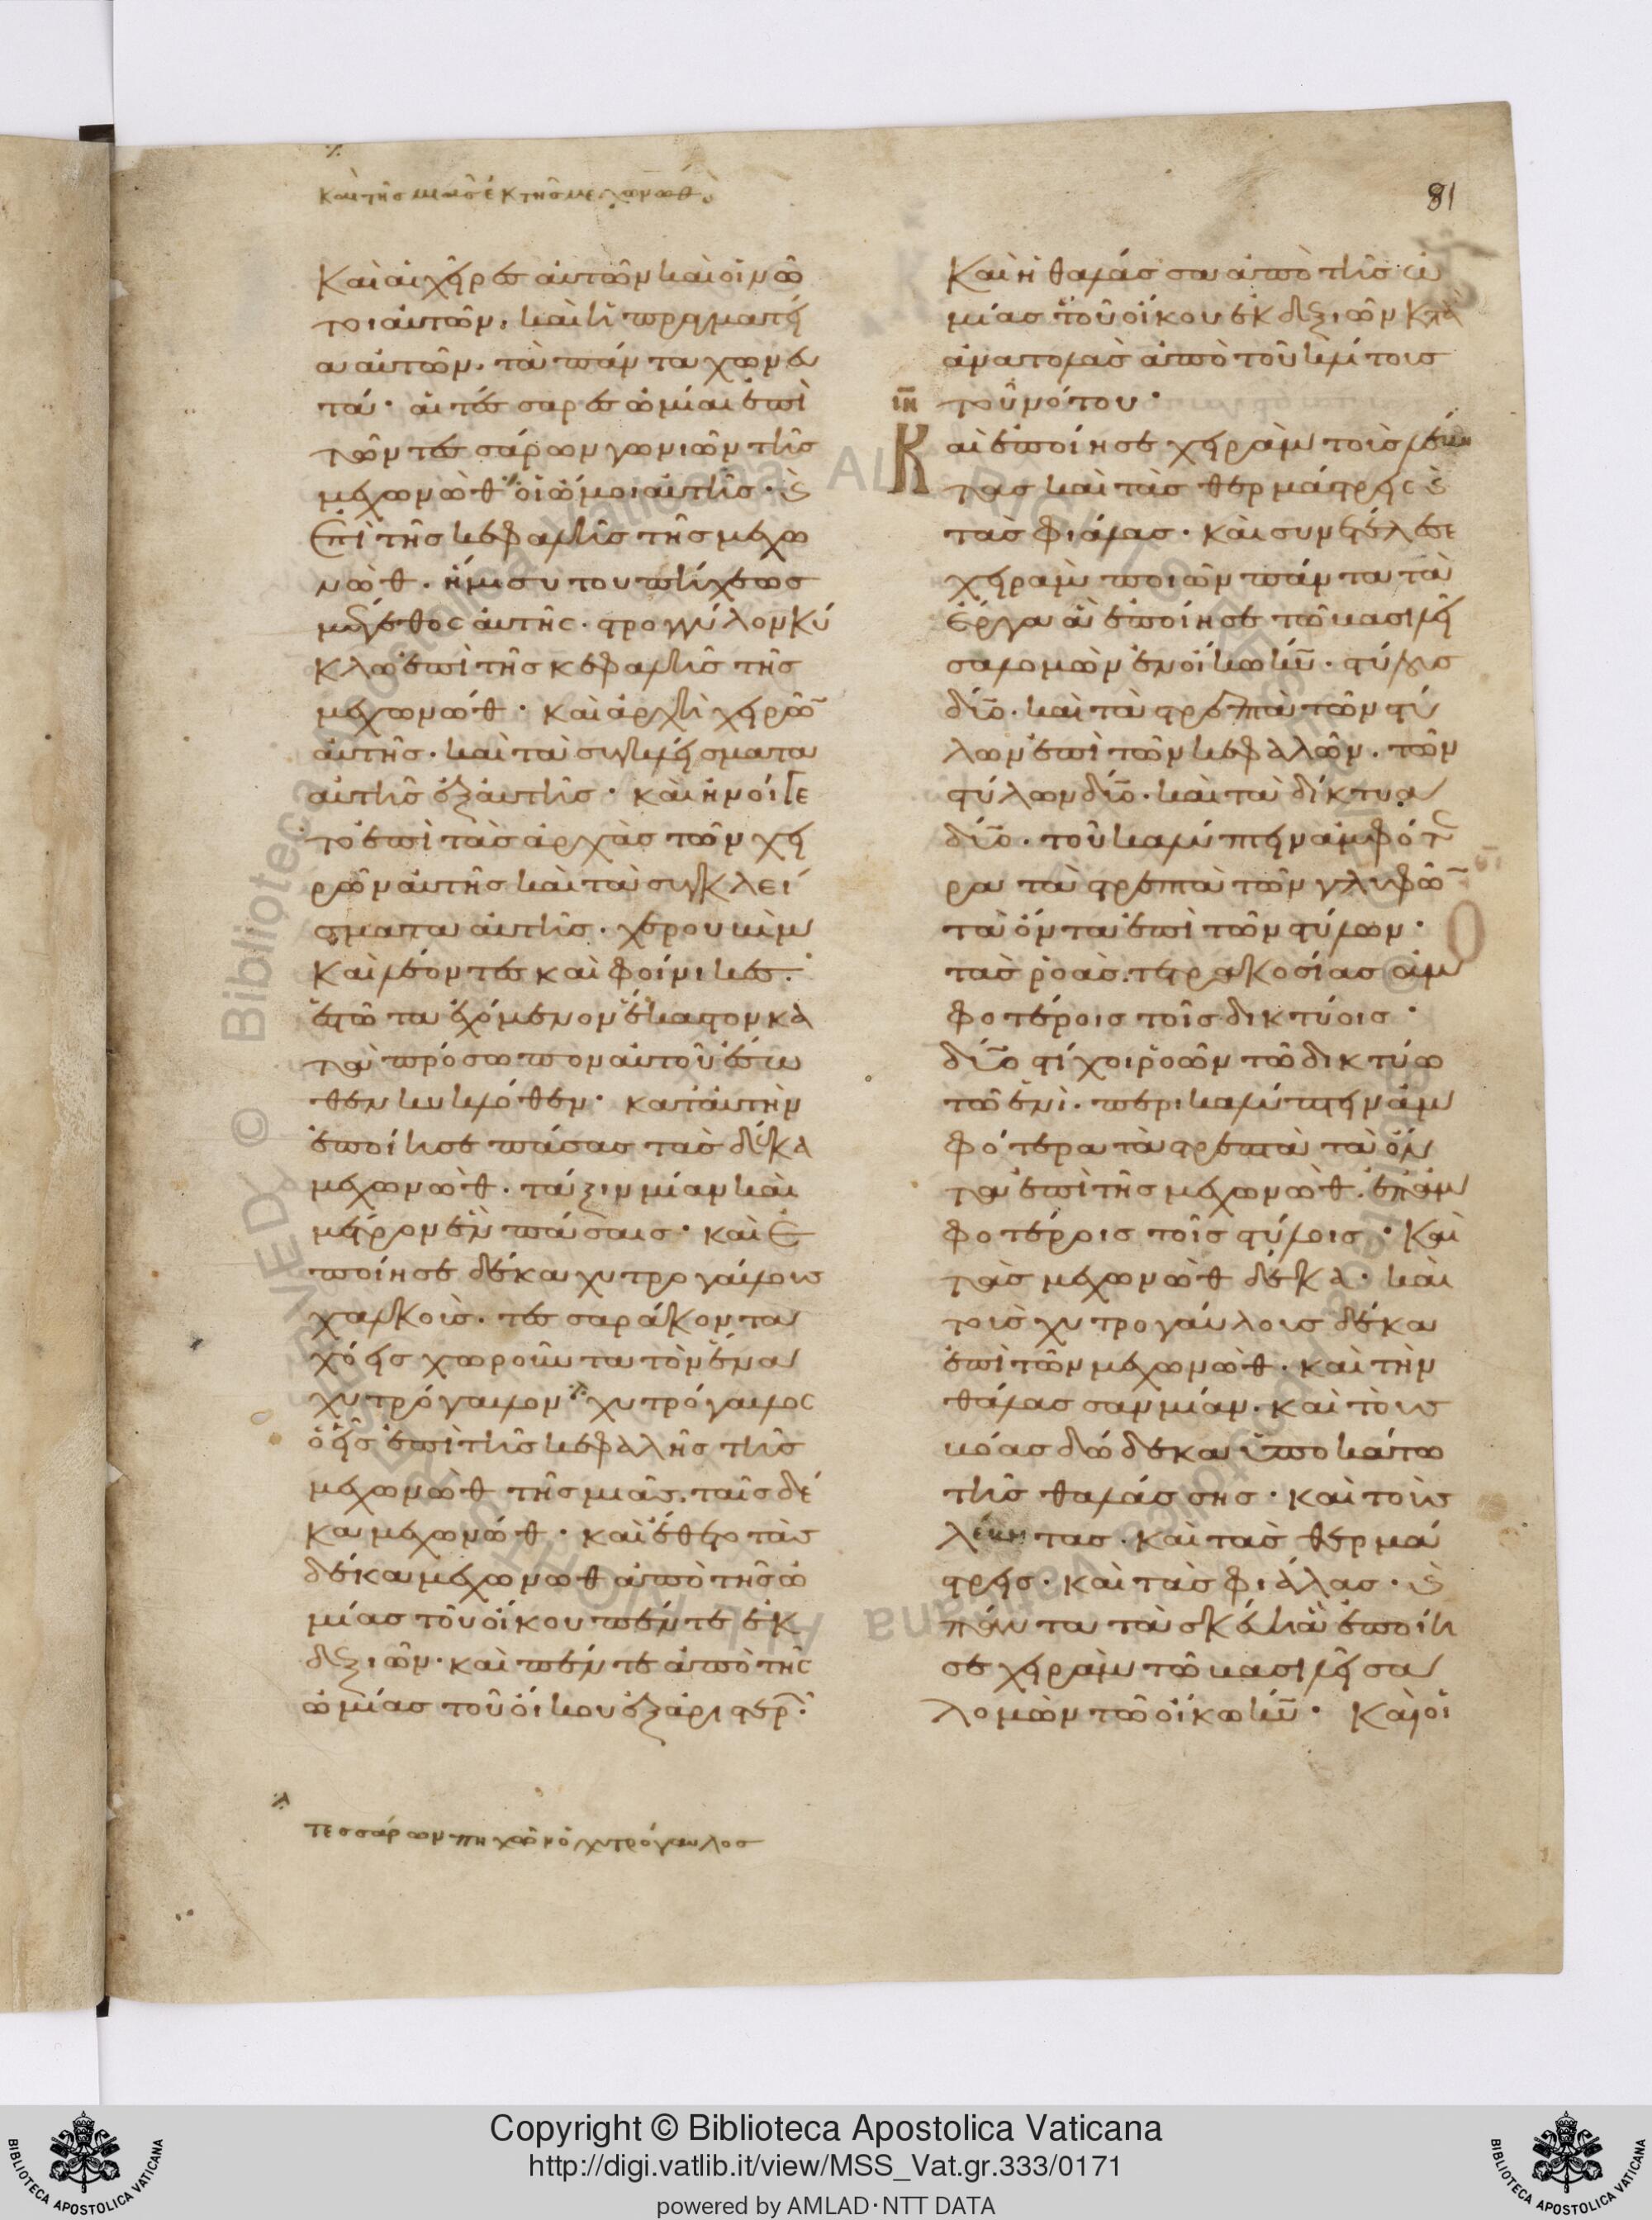 καὶ τῆς μιᾶς ἐκ τῆς μεχωνὼθ
81
Καὶ αἱ χεῖρες αὐτῶν καὶ οἱ νῶ
τοι αὐτῶν. καὶ ἡ πραγματεί
α αὐτῶν. τὰ πάντα χωνευ
τά· αἱ τέσσαρες ὠμίαι ἐπὶ
τῶν τεσσάρων γωνιῶν τῆς
μεχωνὼθ οἱ ὦμοι αὐτῆς· καὶ
ἐπὶ τῆς κεφαλῆς τῆς μεχω
νὼθ. ἥμισυ του πήχεως
μέγεθος αὐτῆς. στρογγύλον κύ
κλω ἐπὶ τῆς κεφαλῆς τῆς
μεχωνώθ· καὶ ἀρχὴ χειρῶν
αὐτῆς. καὶ τὰ συγκλείσματα
αὐτῆς ἐξ αὐτῆς· καὶ ἠνοίγε
το ἐπὶ τὰς ἀρχὰς τῶν χει
ρῶν αὐτῆς καὶ τὰ συγκλεί
σματα αὐτῆς. χερουβὶμ
καὶ λέοντες καὶ φοίνικες.
ἑστῶτα ἐχόμενον ἕκαστον κα
τὰ πρόσωπον αὐτοῦ ἔσω
θεν κυκλόθεν· κατ' αὐτὴν
ἐποίησε πάσας τὰς δέκα
μεχωνὼθ. τάξιν μίαν καὶ
μέτρον ἓν πάσαις· καὶ ἐ
ποίησε δέκα χυτρογαύλους
χαλκοῦς. τεσσαράκοντα
χόεις χωροῦντα τὸν ἕνα
χυτρόγαυλον χυτρόγαυλος
ὁ εἷς ἐπὶ τῆς κεφαλῆς τῆς
μεχωνὼθ τῆς μιᾶς. ταῖς δέ
κα μεχωνώθ· καὶ ἔθετο τὰς
δέκα μεχωνωθ ἀπὸ τῆς ὠ
μίας τοῦ οἴκου πέντε ἐκ
δεξιῶν· καὶ πέντε ἀπὸ τῆς
ὠμίας τοῦ οἴκου ἐξ ἀριστερ·
τεσσάρων πηχῶν ὁ χυτρόγαυλος
Καὶ ἡ θαλάσσα ἀπὸ τῆς ὠ
μίας τοῦ οἴκου ἐκ δεξιῶν κατὰ
ἀνατολὰς ἀπὸ τοῦ κλίτους
τοῦ νότου·
Καὶ ἐποίησε χειρὰμ τοὺς λέβη
τας καὶ τὰς θερμάστρεις καὶ
τὰς φιάλας· καὶ συνετέλεσε
χειρὰμ ποιῶν πάντα τὰ
ἔργα ἃ ἐποίησε τῶ βασιλεῖ
σαλομὼν ἐν οἴκω κῡ. στύλους
δύο. καὶ τὰ στρεπτὰ τῶν στύ
λων ἐπὶ τῶν κεφαλῶν. τῶν
στύλων δύο. καὶ τὰ δίκτυα
δύο. τοῦ καλύπτειν ἀμφότε
ρα τὰ στρεπτὰ τῶν γλυφῶν
τὰ ὄντα ἐπὶ τῶν στύλων·
τὰς ῥοὰς. τετρακοσίας ἀμ
φοτέροις τοῖς δικτύοις·
δύο στίχοι ῥοῶν τῶ δικτύω
τῶ ἑνὶ. περικαλύπτειν ἀμ
φότερα τὰ στρεπτὰ τὰ ὄν
τα ἐπὶ τῆς μεχωνὼθ. ἐπ' ἀμ
φοτέροις τοῖς στύλοις· Καὶ
τὰς μεχωνὼθ δέκα· καὶ
τοὺς χυτρογαύλους δέκα
ἐπὶ τῶν μεχωνὼθ. καὶ τὴν
θάλασσαν μίαν. καὶ τοὺς
βόας δώδεκα ὑποκάτω
τῆς θαλάσσης· καὶ τοὺς
λέβητας. καὶ τὰς θερμά
στρεις· καὶ τὰς φιάλας· καὶ
πάντα τὰ σκεύη ἃ ἐποίη
σε χειρὰμ τῶ βασιλεῖ σα
λομὼν τῶ οἴκω κῡ· Καὶ οἱ
Copyright © Biblioteca Apostolica Vaticana
http://digi.vatlib.it/view/MSS_Vat.gr.333/0171
powered by AMLAD·NTT DATA
BIBLIOTECA APOSTOLICA VATICANA
BIBLIOTECA APOSTOLICA VATICANA